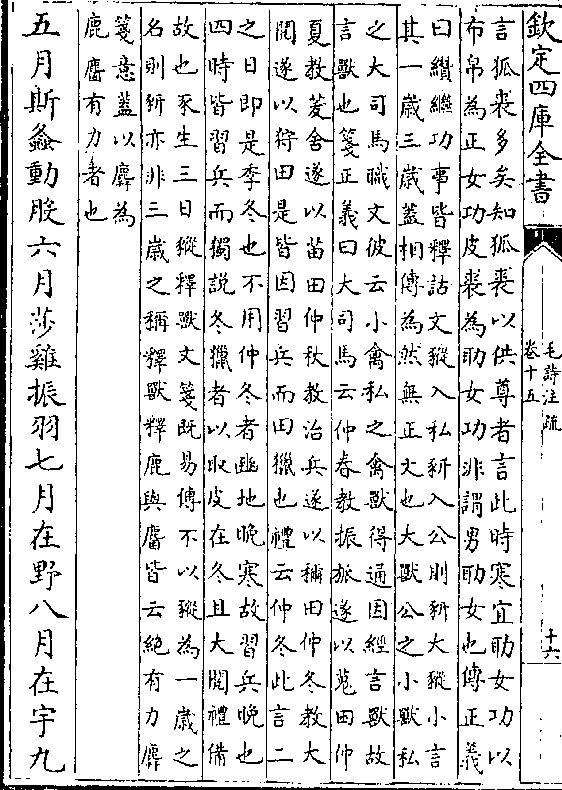 欽定四庫全書
毛詩注疏
卷十五
十六
言狐裘多矣知狐裘以供尊者言此時寒宜助女功以
布帛為正女功皮裘為助女功非謂男助女也傳正義
曰纘繼功事皆釋詁文豵入私豣入公則豣大豵小言
其一歲三歲蓋相傳為然無正文也大獸公之小獸私
之大司馬職文彼云小禽私之禽獸得通因經言獸故
言獸也箋正義曰大司馬云仲春教振旅遂以蒐田仲
夏教茇舍遂以苗田仲秋教治兵遂以獮田仲冬教大
閱遂以狩田是皆因習兵而田獵也禮云仲冬此言二
之日即是季冬也不用仲冬者豳地晚寒故習兵晚也
四時皆習兵而獨說冬獵者以取皮在冬且大閱禮備
故也豕生三日豵釋獸文箋既易傳不以豵為一歲之
名則豣亦非三歲之稱釋獸釋鹿與麕皆云絕有力麉
箋意蓋以麉為
鹿麕有力者也
五月斯螽動股六月莎雞振羽七月在野八月在宇九